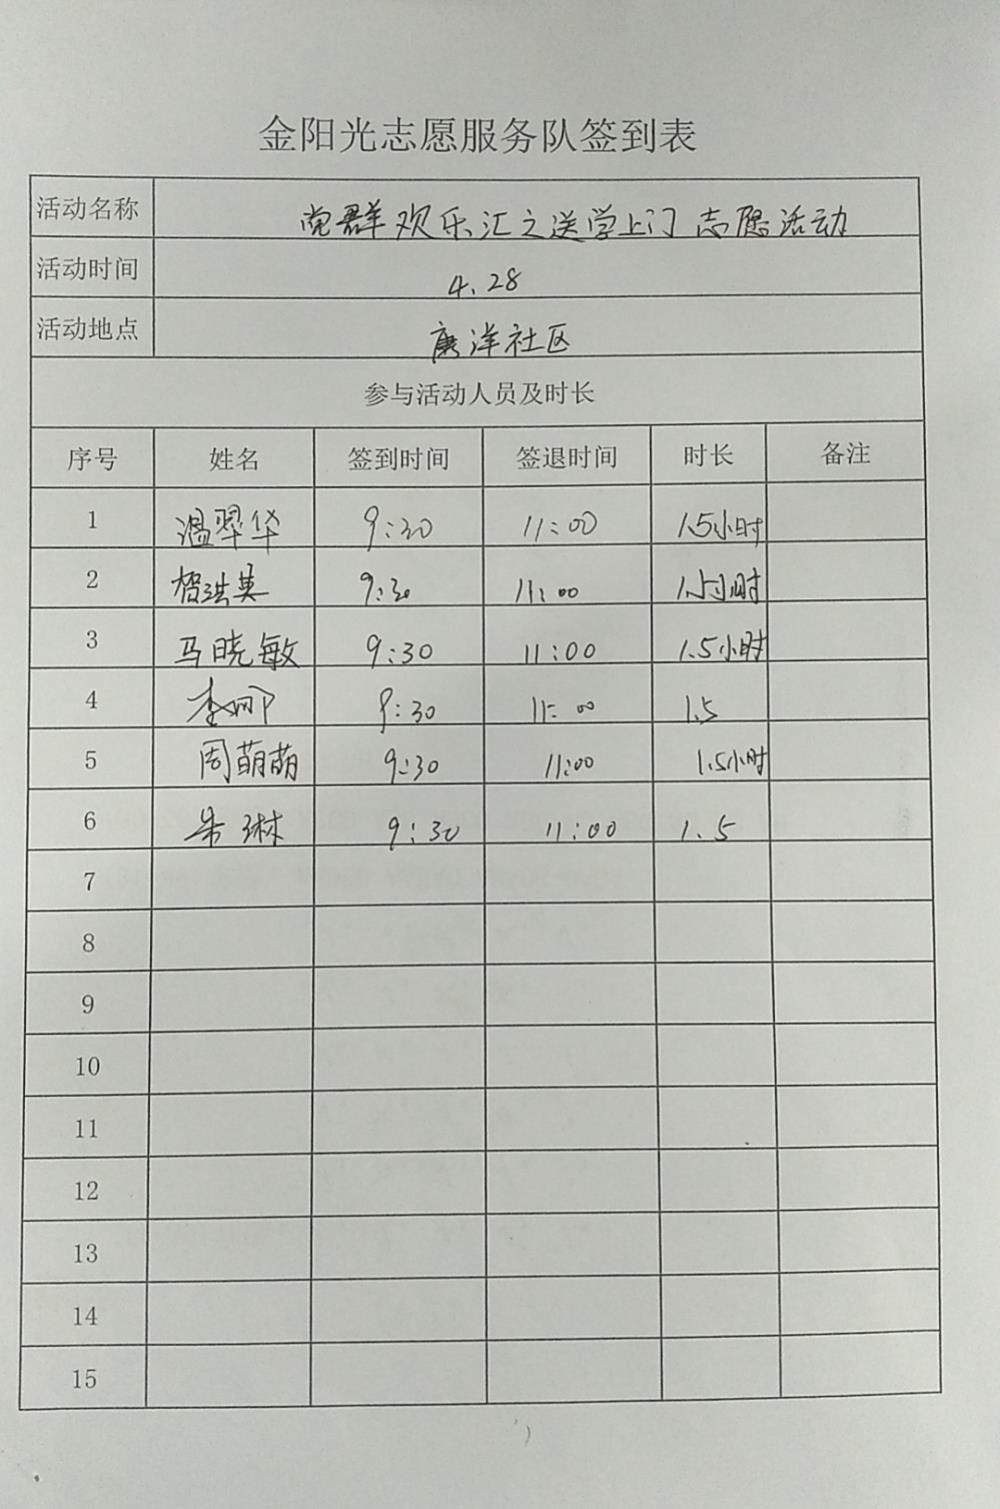 金阳光志愿服务队签到表
活动名称 党群欢乐汇之送学上门志愿活动
活动时间 4.28
活动地点 唐洋社区
参与活动人员及时长
序号 姓名 签到时间 签退时间 时长 备注
1 温翠华 9:30 11:00 1.5小时
2 9:30 11:00 1.5小时
3 马晓敏 9:30 11:00 1.5小时
4 李娜 9:30 11:00 1.5
5 周萌萌 9:30 11:00 1.5小时
6 朱琳 9:30 11:00 1.5
7
8
9
10
11
12
13
14
15